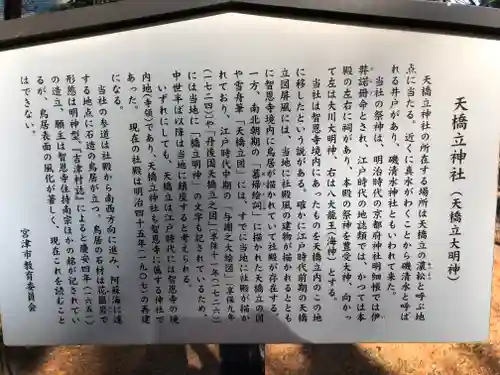 天橋立神社(天橋立大明神)
天橋立神社の所在する場所は天橋立の濃松と呼ぶ地
点に当たる。近くに真水がわくことから磯清水と呼ば
れる井戸があり、磯清水神社ともいわれて来た。
当社の祭神は、明治時代の京都府神社明細帳では伊
弉諾冊命とされ、江戸時代の地誌類では、かつては本
殿の左右に祠があり、本殿の祭神を豊受大神、向かっ
て左は大川大明神、右は八大龍王(海神)とする。
当社は智恩寺境内にあったものを天橋立内のこの地
に移したという説がある。確かに江戸時代前期の天橋
立図屏風には、当地に社殿風の建物が描かれるととも
に智恩寺境内に鳥居が描かれていて社殿が存在する。
一方、南北朝期の「慕帰絵詞」に描かれた天橋立の図
や雪舟筆「天橋立図」には、すでに当地に社殿が描か
れており、江戸時代中期の「与謝之大絵図」(享保九年
(一七二四))や「丹後国天橋立之図」(享保十一年(一七二六))
には当地に「橋立明神」の文字も記されているため、
中世半ば以降は当地に鎮座すると考えられる。
いずれにしても、天橋立は江戸時代には智恩寺の境
内地(寺領)であり、天橋立神社も智恩寺に属する神社で
あった。現在の社殿は明治四十年(一九〇七)の再建
になる。
当社の参道は社殿から南西方向へ進み、阿蘇海に達
する地点に石造の鳥居が立つ。鳥居の石材は花崗岩で
形態は明神型。『吉津村誌』によると慶安四年(一六五一)
の造立、願主は智恩寺住持南宗ほかの銘が記されてい
るが、鳥居表面の風化が著しく、現在これを読むこと
はできない。
宮津市教育委員会